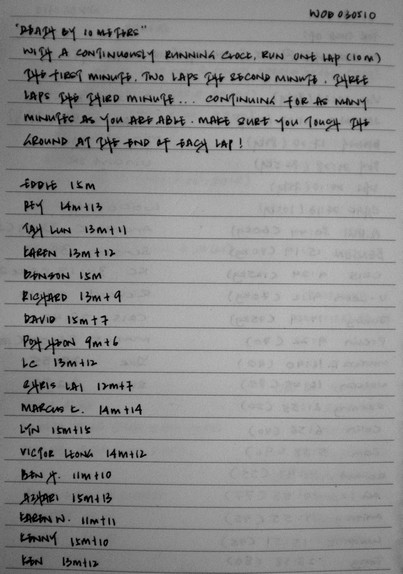 WOD 030510
"DEATH BY 10 METERS"
WITH A CONTINUOUSLY RUNNING CLOCK, RUN ONE LAP (10m)
THE FIRST MINUTE, TWO LAPS THE SECOND MINUTE, THREE
LAPS THE THIRD MINUTE... CONTINUING FOR AS MANY
MINUTES AS YOU ARE ABLE. MAKE SURE YOU TOUCH THE
GROUND AT THE END OF EACH LAP!
EDDIE 15m
REY 14m+13
TAH LUN 13m+11
KAREN 13m+12
BENSON 15m
RICHARD 13m+9
DAVID 15m+7
POH HOON 9m+6
LC 13m+12
CHRIS LAI 12m+7
MARCUS K. 14m+14
LYN 15m+15
VICTOR LEONG 14m+12
BEN X. 11m+10
AZHARI 15m+13
KAREN N. 11m+11
KENNY 15m+10
KEN 13m+12